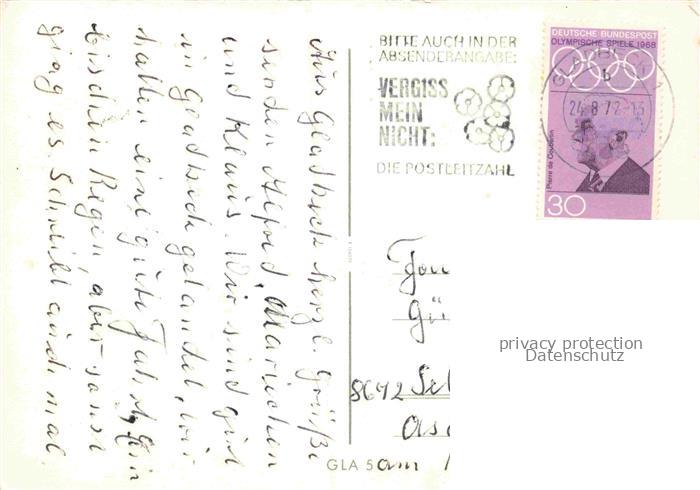 Aus Gladbeck herzl. Grüße
senden Alfred, Mariechen
und Klaus. Wir sind gut
in Gladbeck gelandet, wir
hatten eine gute Fahrt, ein
bischen Regen, aber sonst
ging es. Schreibt auch mal.
BITTE AUCH IN DER
ABSENDERANGABE:
VERGISS
MEIN
NICHT:
DIE POSTLEITZAHL
24.8.72-13
b
DEUTSCHE BUNDESPOST
OLYMPISCHE SPIELE 1968
Pierre de Coubertin
30
Gü
8642
am
GLA 5
privacy protection
Datenschutz